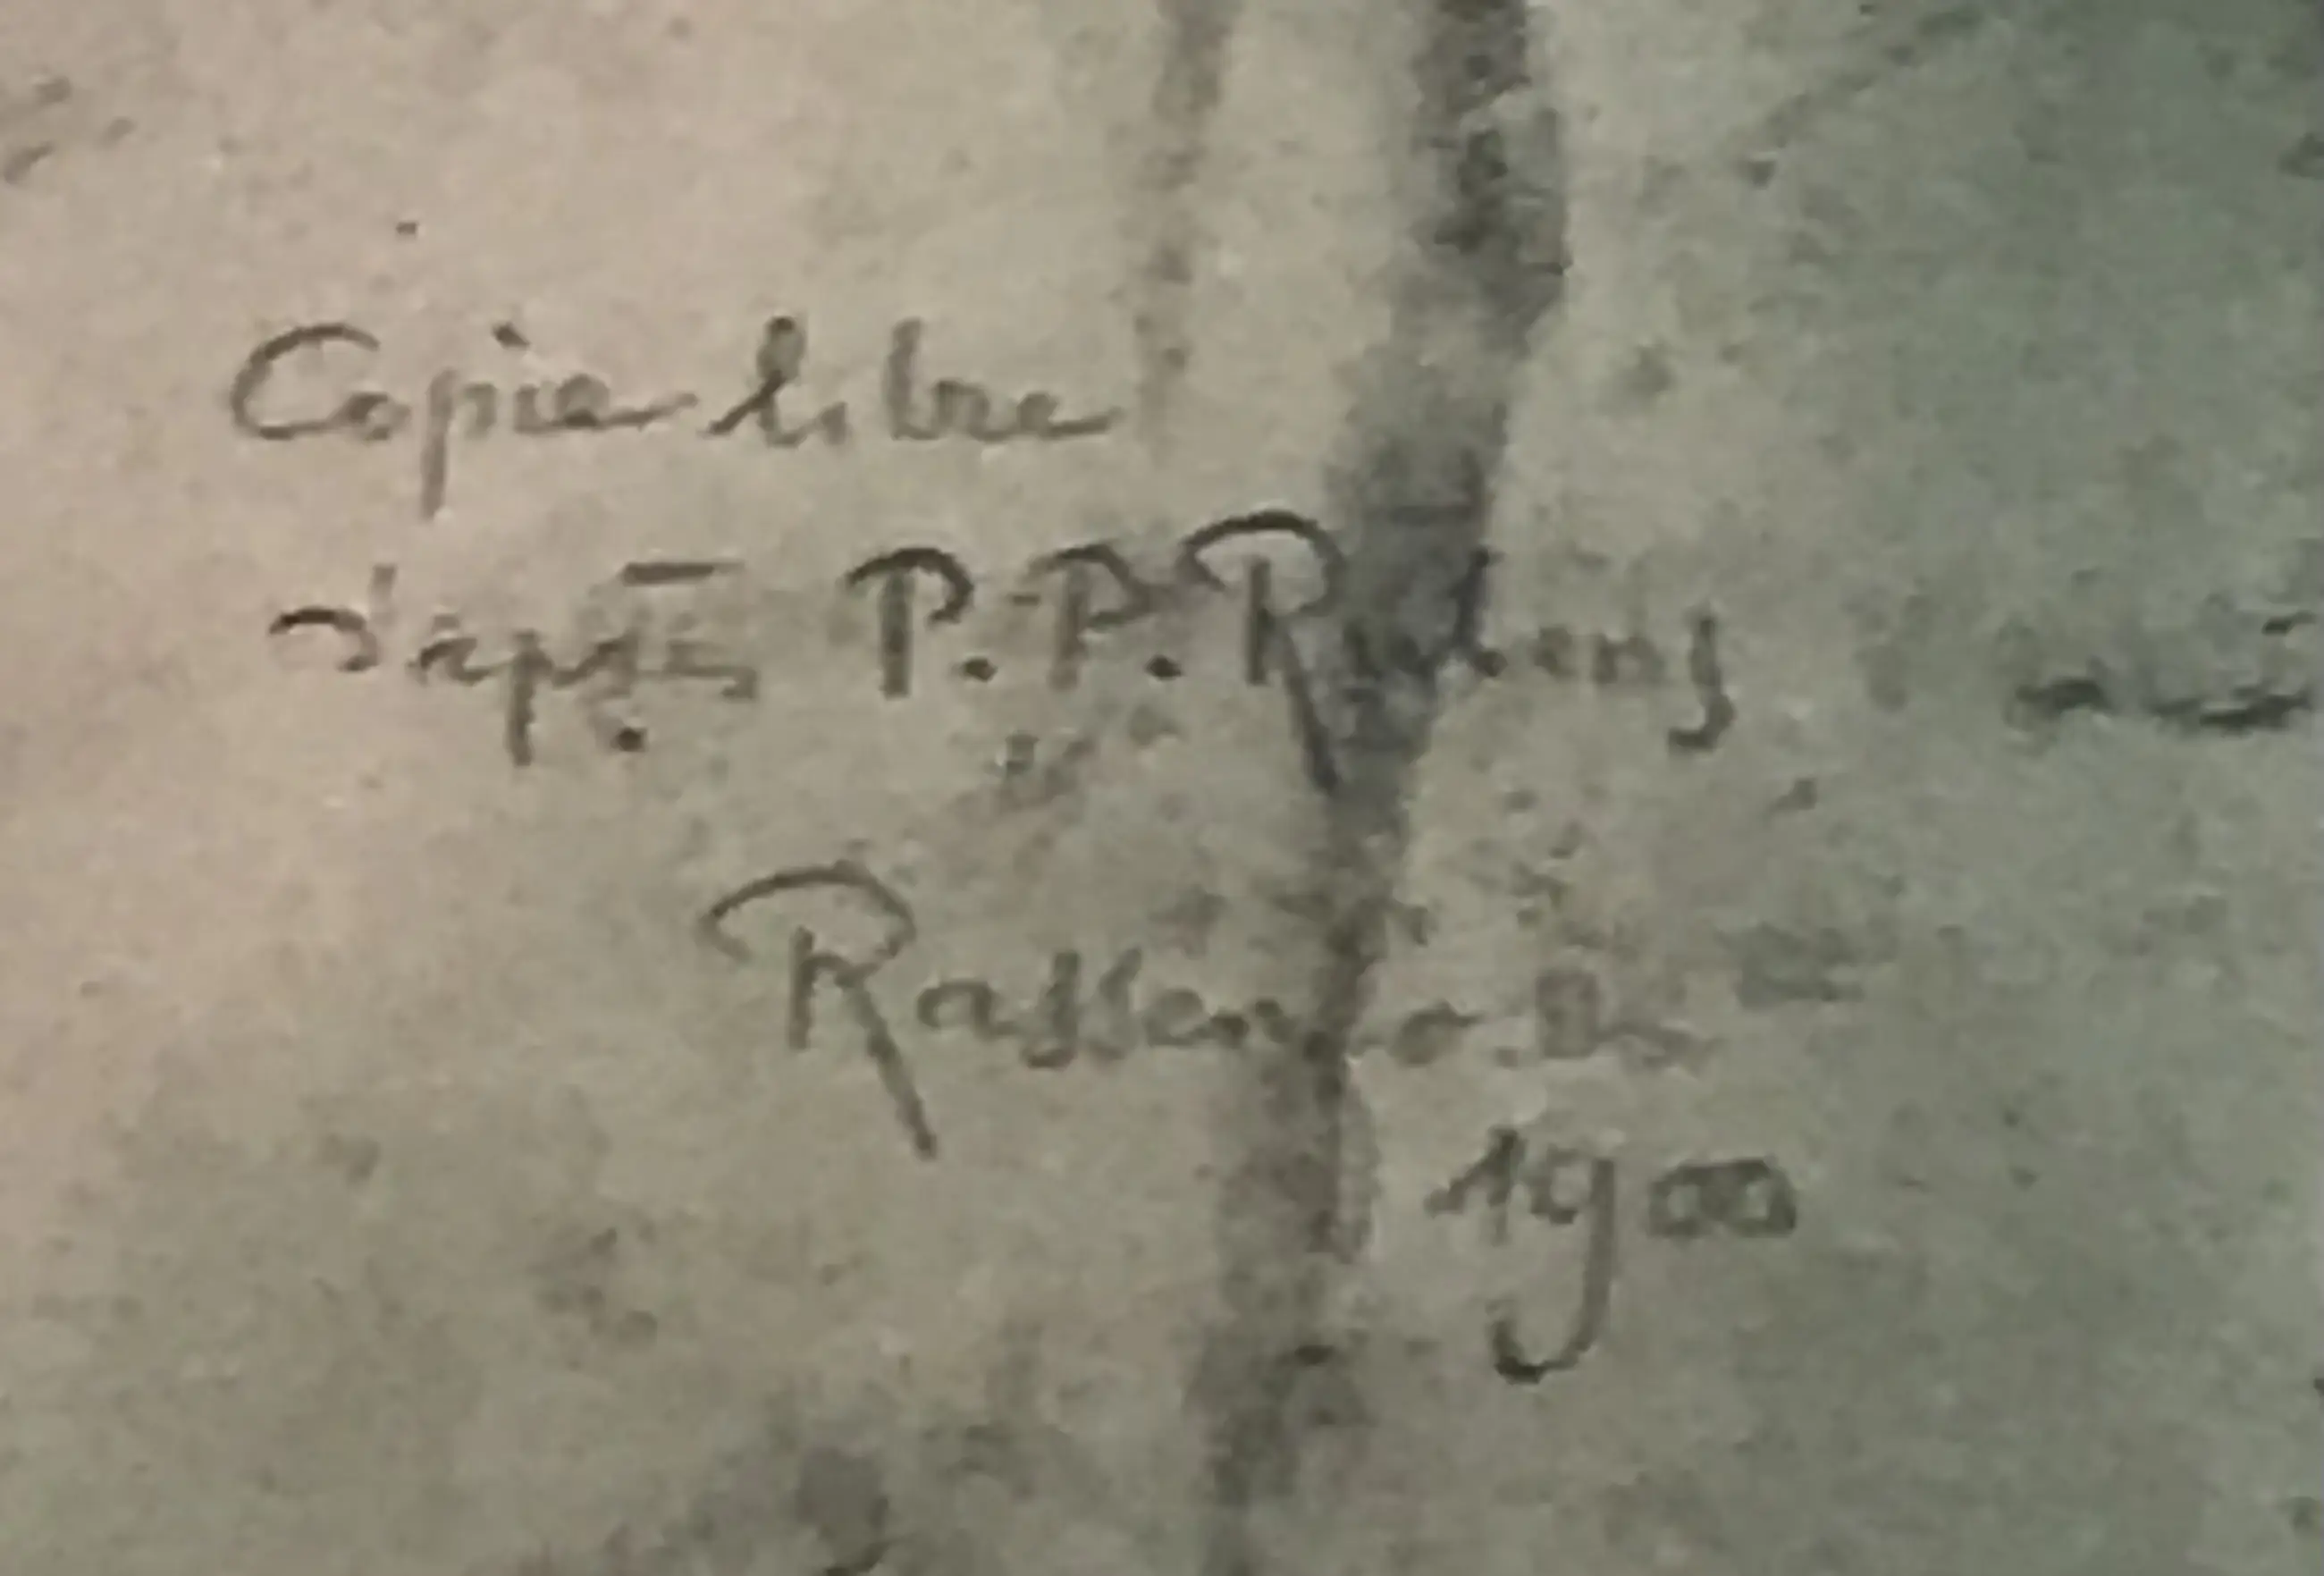 Copie libre
d'après P. P. Rubens
Rassenfosse
1900